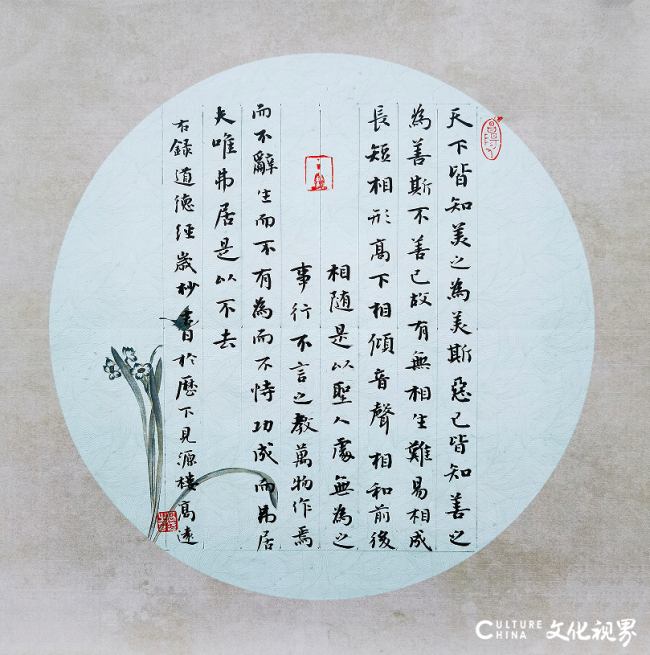 天下皆知美之為美斯惡已皆知善之
為善斯不善已故有無相生難易相成
長短相形高下相傾音聲相和前後
相随是以聖人處無為之
事行不言之教萬物作焉
而不辭生而不有為而不恃功成而弗居
夫唯弗居是以不去
右錄道德經歲杪書於歷下見源樓高遠
CULTURE CHINA 文化视界